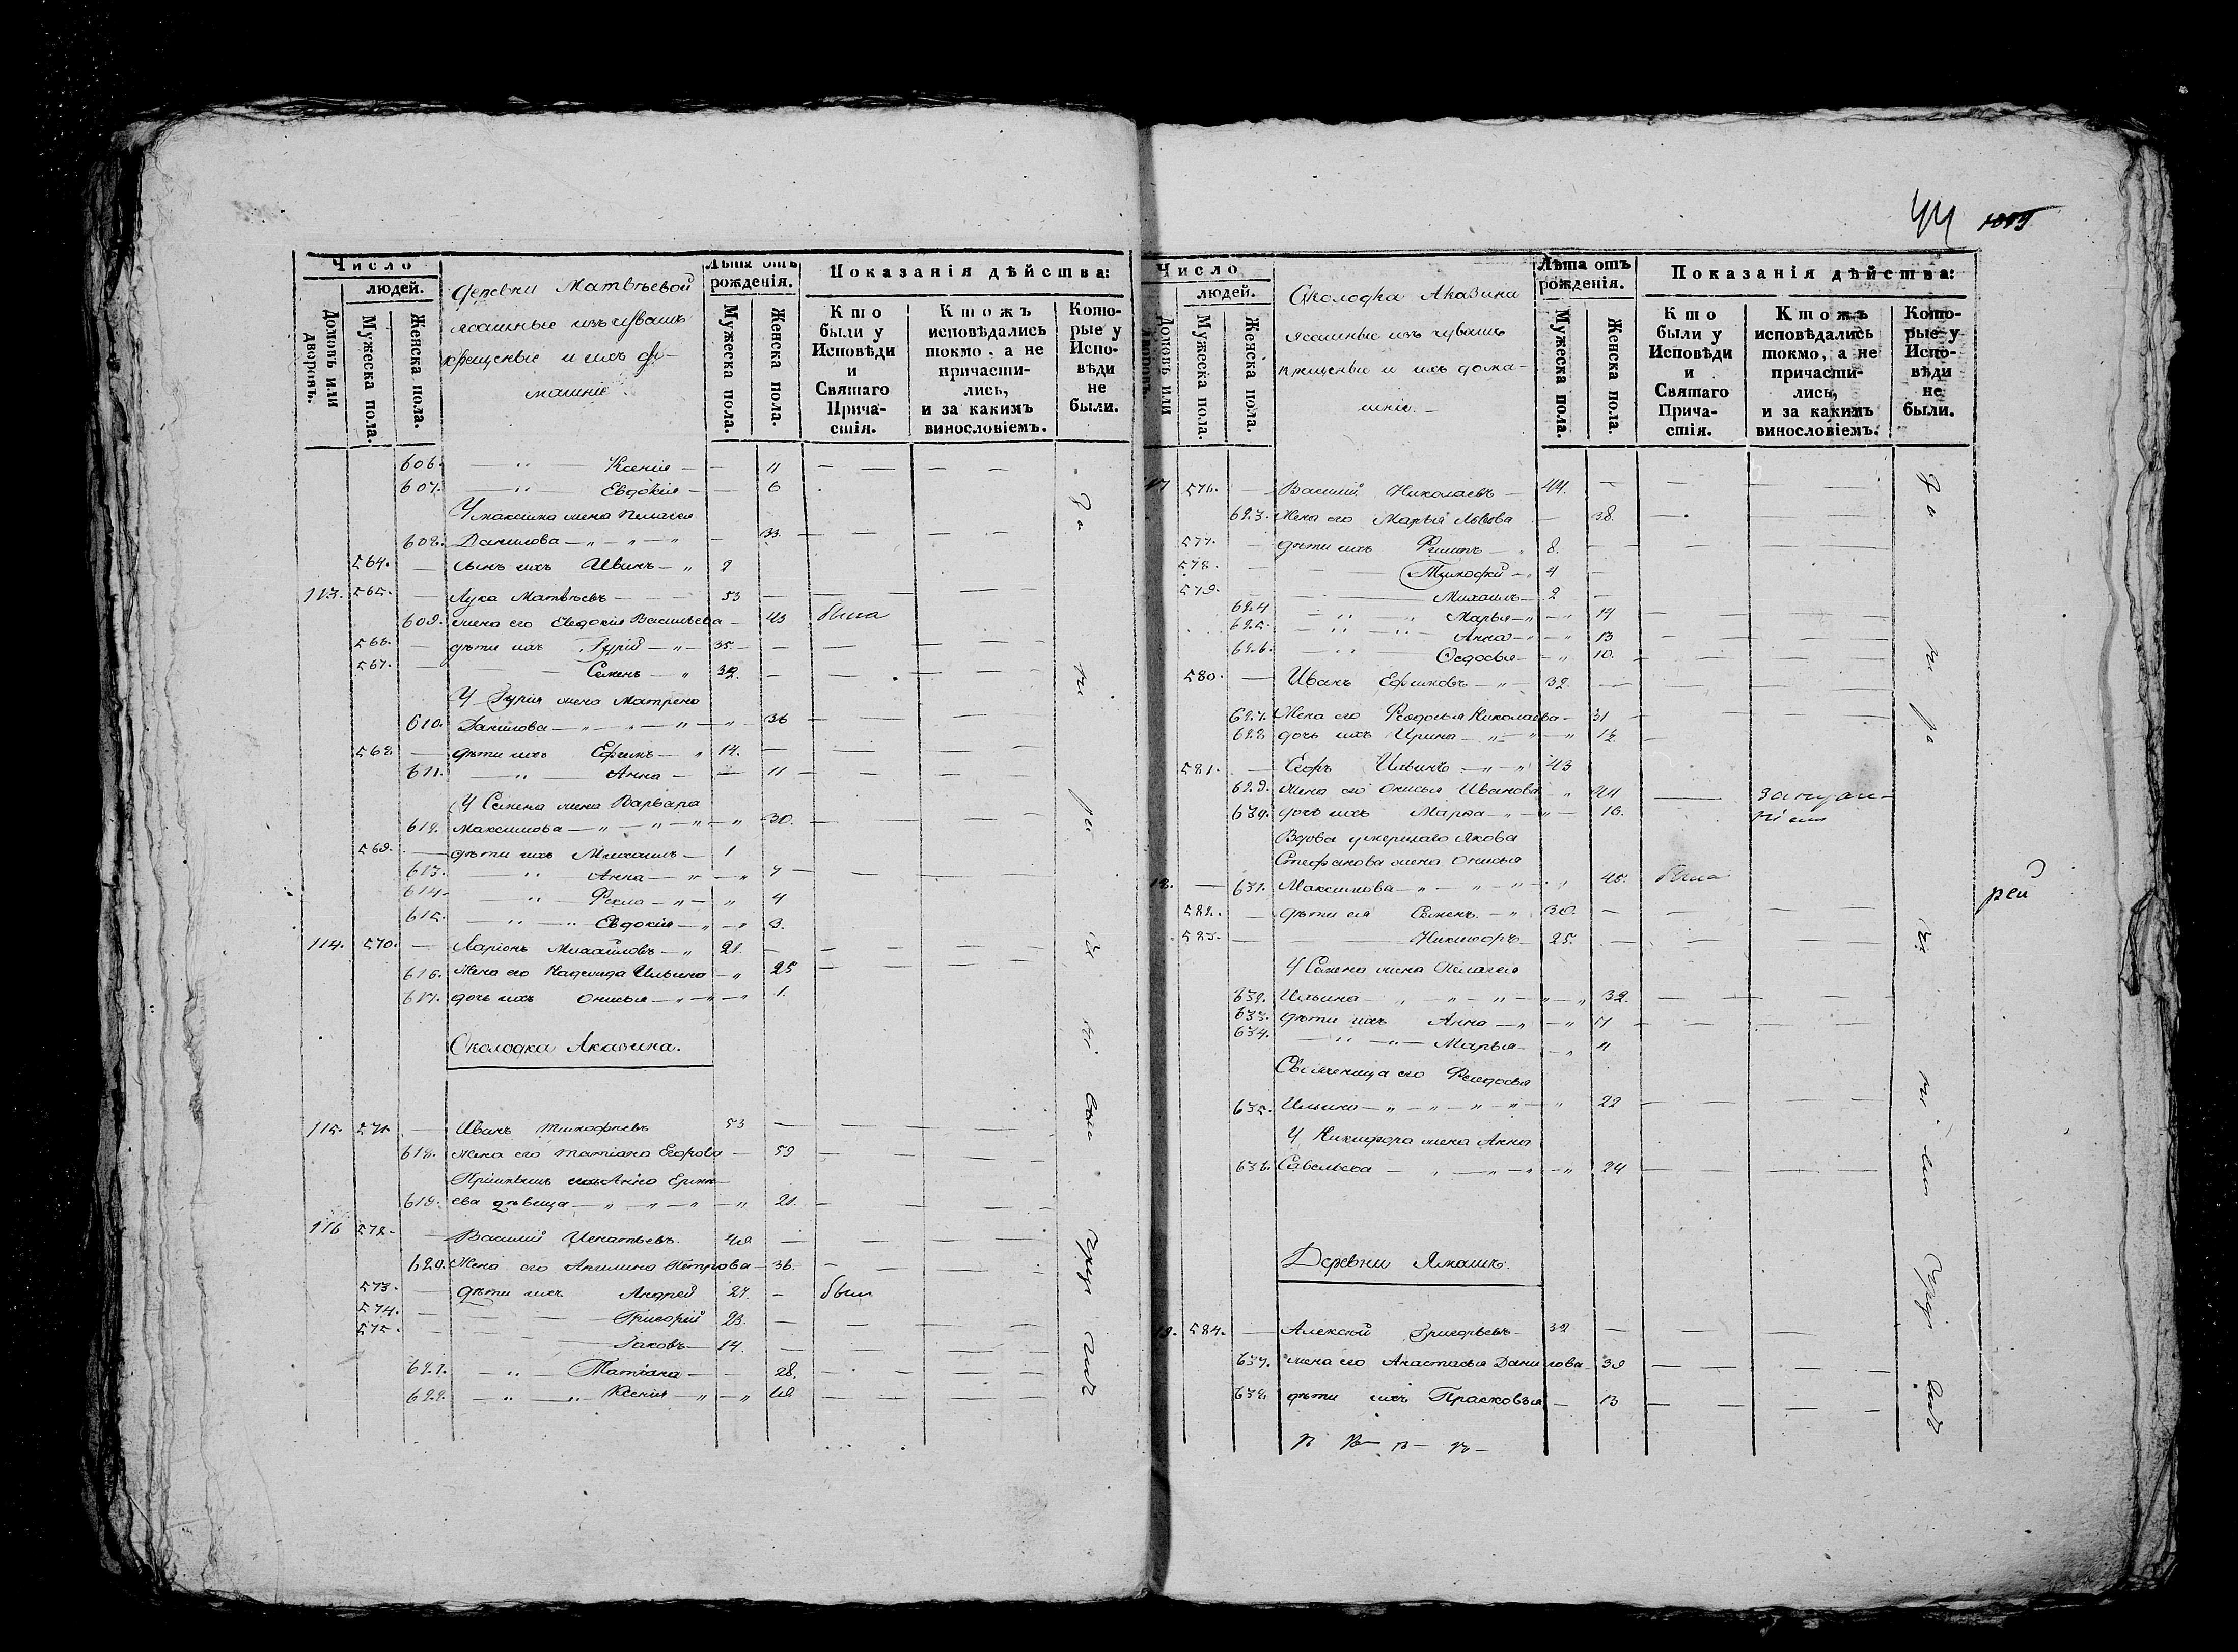 44 1005
Число
людей.
Домовъ или дворовъ.
Мужеска пола.
Женска пола.
деревни Матвѣевой
ясашные изъ чувашъ
крещеные и ихъ до-
машніе
Лѣта отъ рожденія.
Мужеска пола.
Женска пола.
Показанія дѣйства:
Кто были у Исповѣди и Святаго Причастія.
Ктожъ исповѣдались токмо, а не причастились, и за какимъ винословіемъ.
Которые у Исповѣди не были.
606. Ксенія 11
607. Евдокія 6
У Максима жена Пелагея
608. Данилова 33.
564. сынъ ихъ Иванъ 2
113. 565. Лука Матвѣевъ 53
609. жена его Евдокія Васильева 43 была
566. дѣти ихъ Гурій 35.
567. Семенъ 32.
У Гурія жена Матрена
610. Данилова 36
568 дѣти ихъ Ефимъ 14.
611. Анна 11
У Семена жена Варвара
612. Максимова 30.
569. дѣти ихъ Михаилъ 1
613. Анна 7
614. Фекла 4
615. Евдокія 3.
114. 570. Ларіонъ Михайловъ 21.
616. Жена его Надежда Ильина 25
617. дочь ихъ Онисья 1.
Околодка Аказина.
115. 571. Иванъ Тимофѣевъ 53
618. Жена его Татіана Егорова 59
Пріимышъ ихъ Анна
619. ева дѣвица 21.
116 572. Василий Игнатьевъ 48
620. Жена его Ангелина Петрова 36.
573. дѣти ихъ Андрей 27. былъ
574. Григорій 23.
575. Іаковъ 14.
621. Татіана 28.
622. Ксенія
Число
людей.
Домовъ или дворовъ.
Мужеска пола.
Женска пола.
Околодка Аказина
ясашные изъ чувашъ
крещеные и ихъ дома-
шніе.
Лѣта отъ рожденія.
Мужеска пола.
Женска пола.
Показанія дѣйства:
Кто были у Исповѣди и Святаго Причастія.
Ктожъ исповѣдались токмо, а не причастились, и за какимъ винословіемъ.
Которые у Исповѣди не были.
17 576. Василий Николаевъ 44.
623. Жена его Марья Львова 38.
577. дѣти ихъ Филипъ 8.
578. Тимофей 4
579. Михаилъ 2
624 Марья 14
625. Анна 13
626. Ѳедосья 10.
580. Иванъ Ефимовъ 32.
627. Жена его Феодосья Николаева 31
628 дочь ихъ Ирина 12.
581. Егоръ Ильинъ 43
629. жена его Онисья Иванова 44
630. дочь ихъ Марѳа 16.
Вдова умершаго Якова
Стефанова жена Онисья
18. 631. Максимова 45. была
582. дѣти ея Семенъ 30.
583. Никифоръ 25.
У Семена жена Пелагея
632. Ильина 32.
633. дѣти ихъ Анна 7
634. Марья 4
Свояченица его Феодосья
635. Ильина 22
У Никифора жена Анна
636. Савельева 24
рей
Деревни Ямашъ.
19. 584. Алексѣй Григорьевъ 32
637. жена его Анастасья Данилова 39
638 дѣти ихъ Прасковья 13